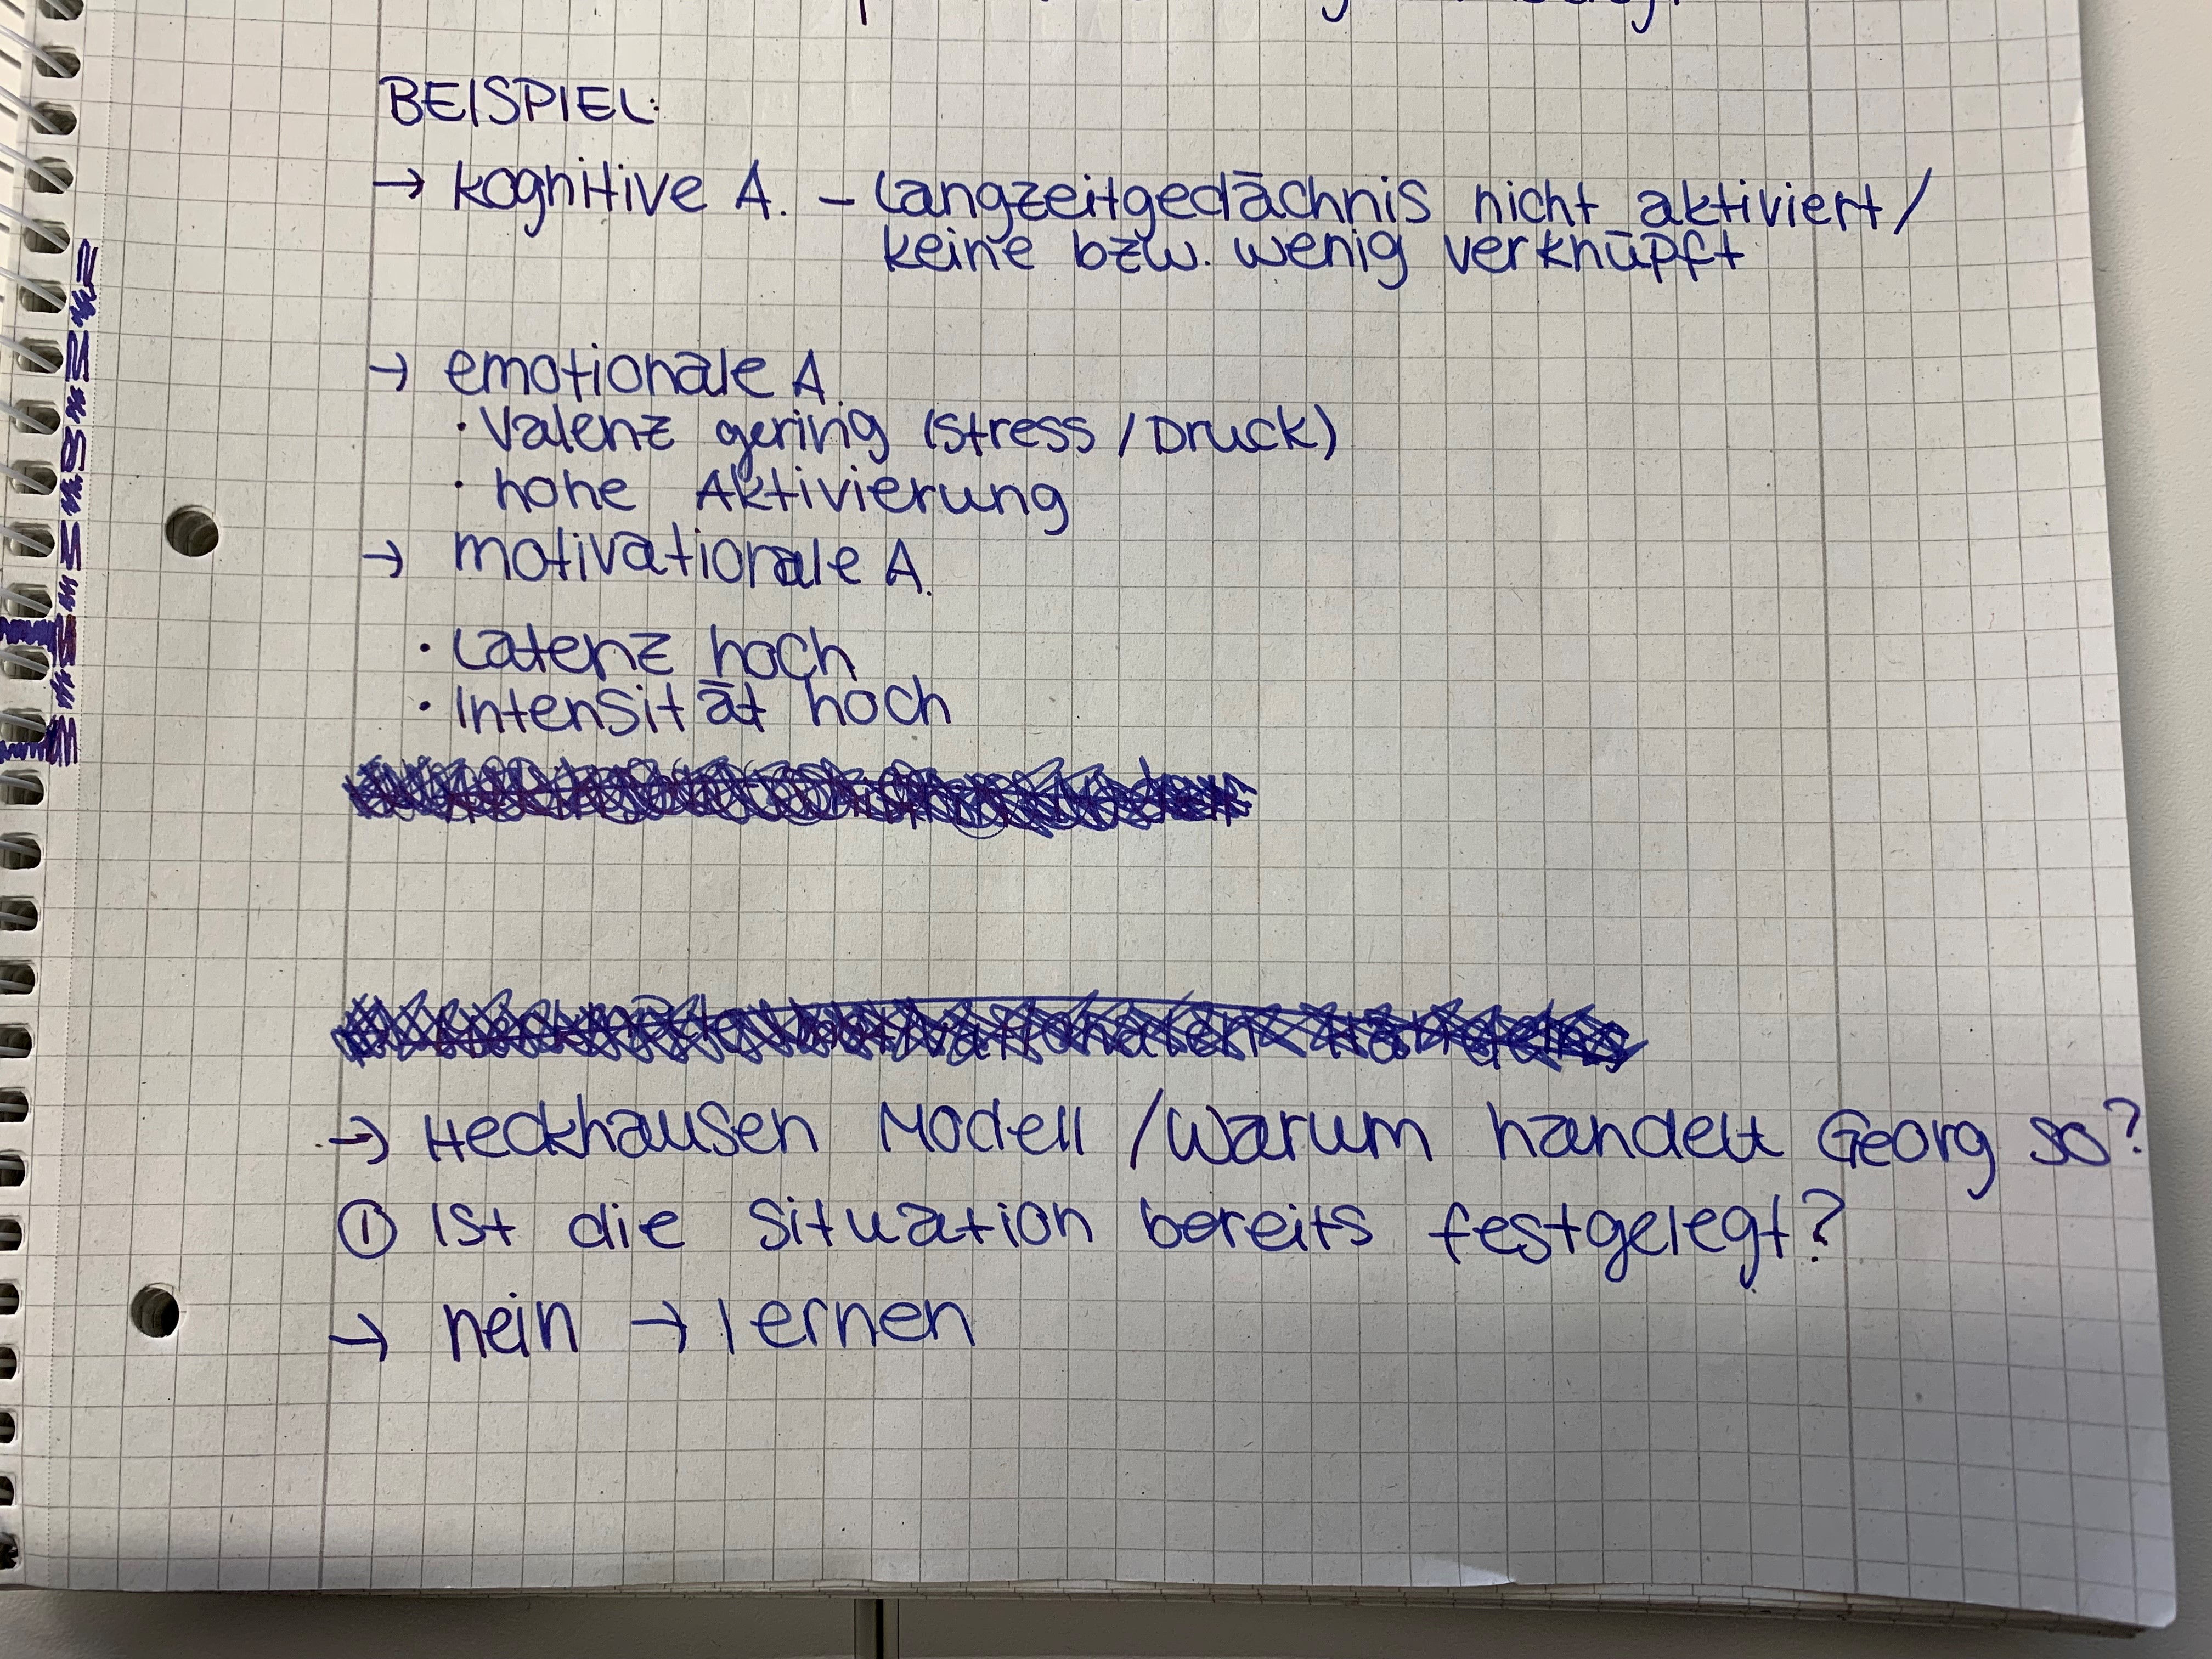 BEISPIEL:
→ kognitive A. – Langzeitgedächnis nicht aktiviert/
keine bzw. wenig verknüpft
→ emotionale A.
· Valenz gering (Stress / Druck)
· hohe Aktivierung
→ motivationale A.
· Latenz hoch
· Intensität hoch
→ Heckhausen Modell / Warum handelt Georg so?
① Ist die Situation bereits festgelegt?
→ nein → lernen